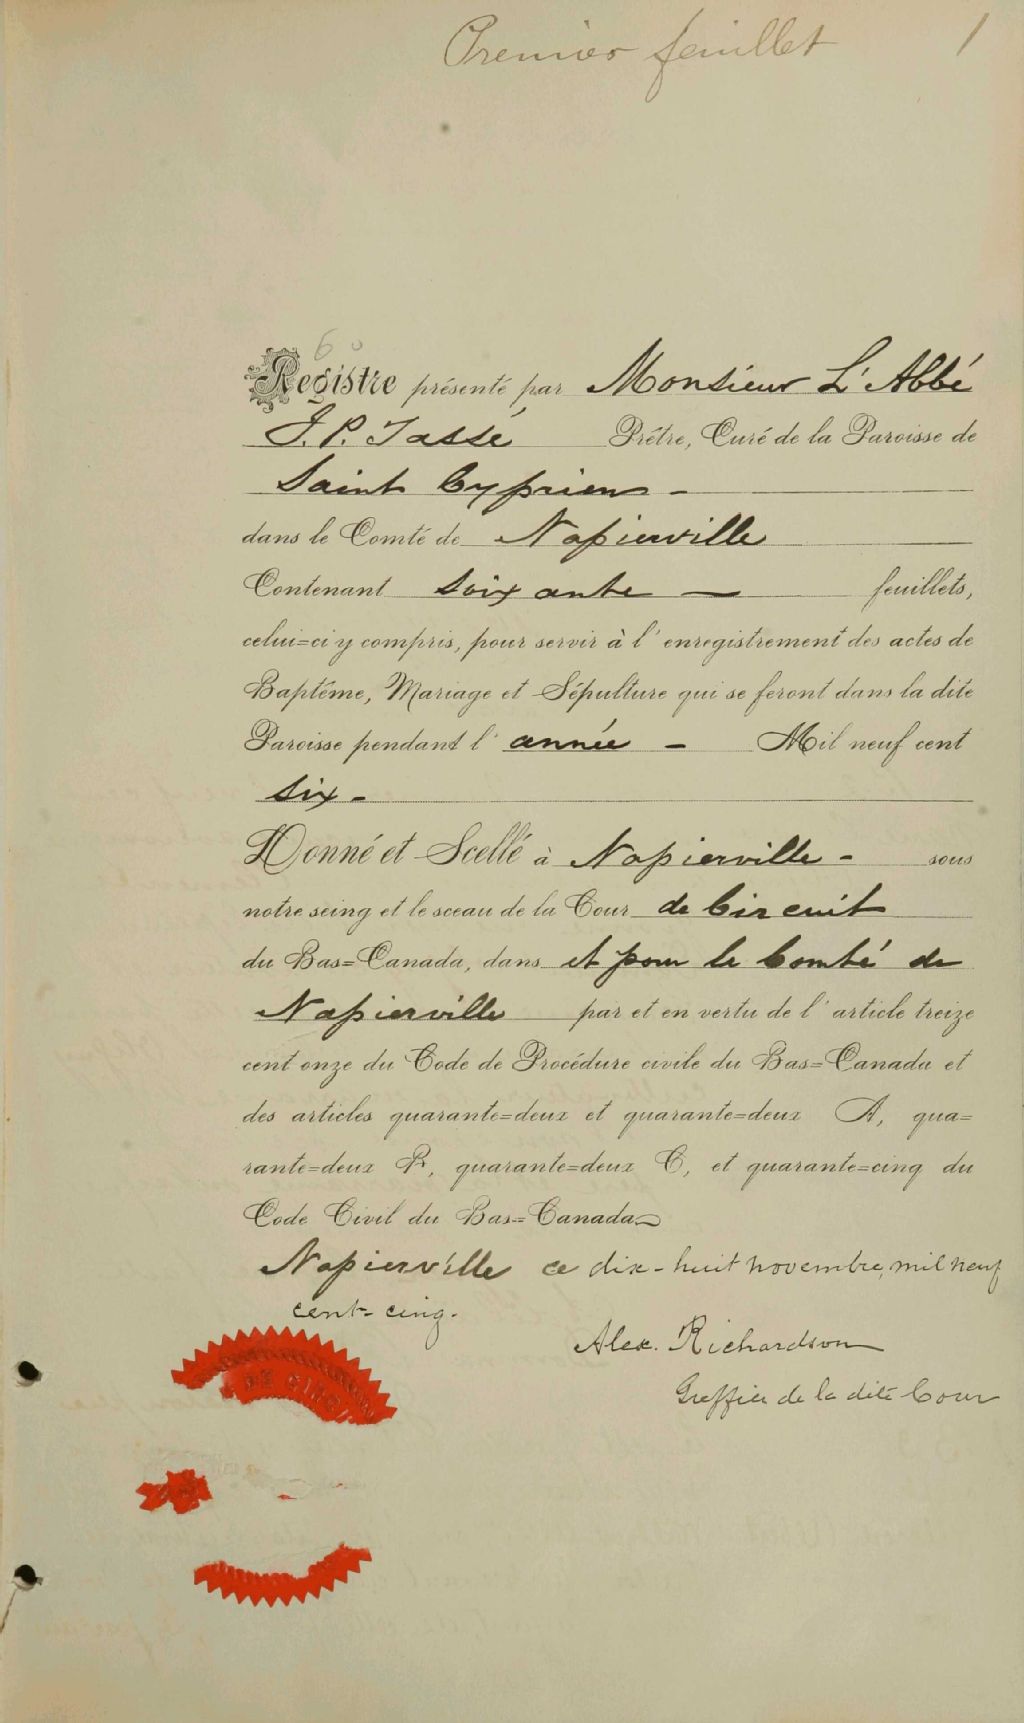 Premier feuillet 1
60
Registre présenté par Monsieur L'Abbé
J. P. Tassé Prêtre, Curé de la Paroisse de
Saint Cyprien -
dans le Comté de Napierville
Contenant Soixante — feuillets,
celui=ci y compris, pour servir à l'enregistrement des actes de
Baptême, Mariage et Sépulture qui se feront dans la dite
Paroisse pendant l'année - Mil neuf cent
six -
Donné et Scellé à Napierville - sous
notre seing et le sceau de la Cour de Circuit
du Bas=Canada, dans et pour le Comté de
Napierville par et en vertu de l'article treize
cent onze du Code de Procédure civile du Bas=Canada et
des articles quarante=deux et quarante=deux A, qua=
rante=deux B, quarante=deux C, et quarante=cinq du
Code Civil du Bas=Canada
Napierville ce dix-huit novembre, mil neuf
cent-cinq.
Alex. Richardson
Greffier de la dite Cour
DE CIRC